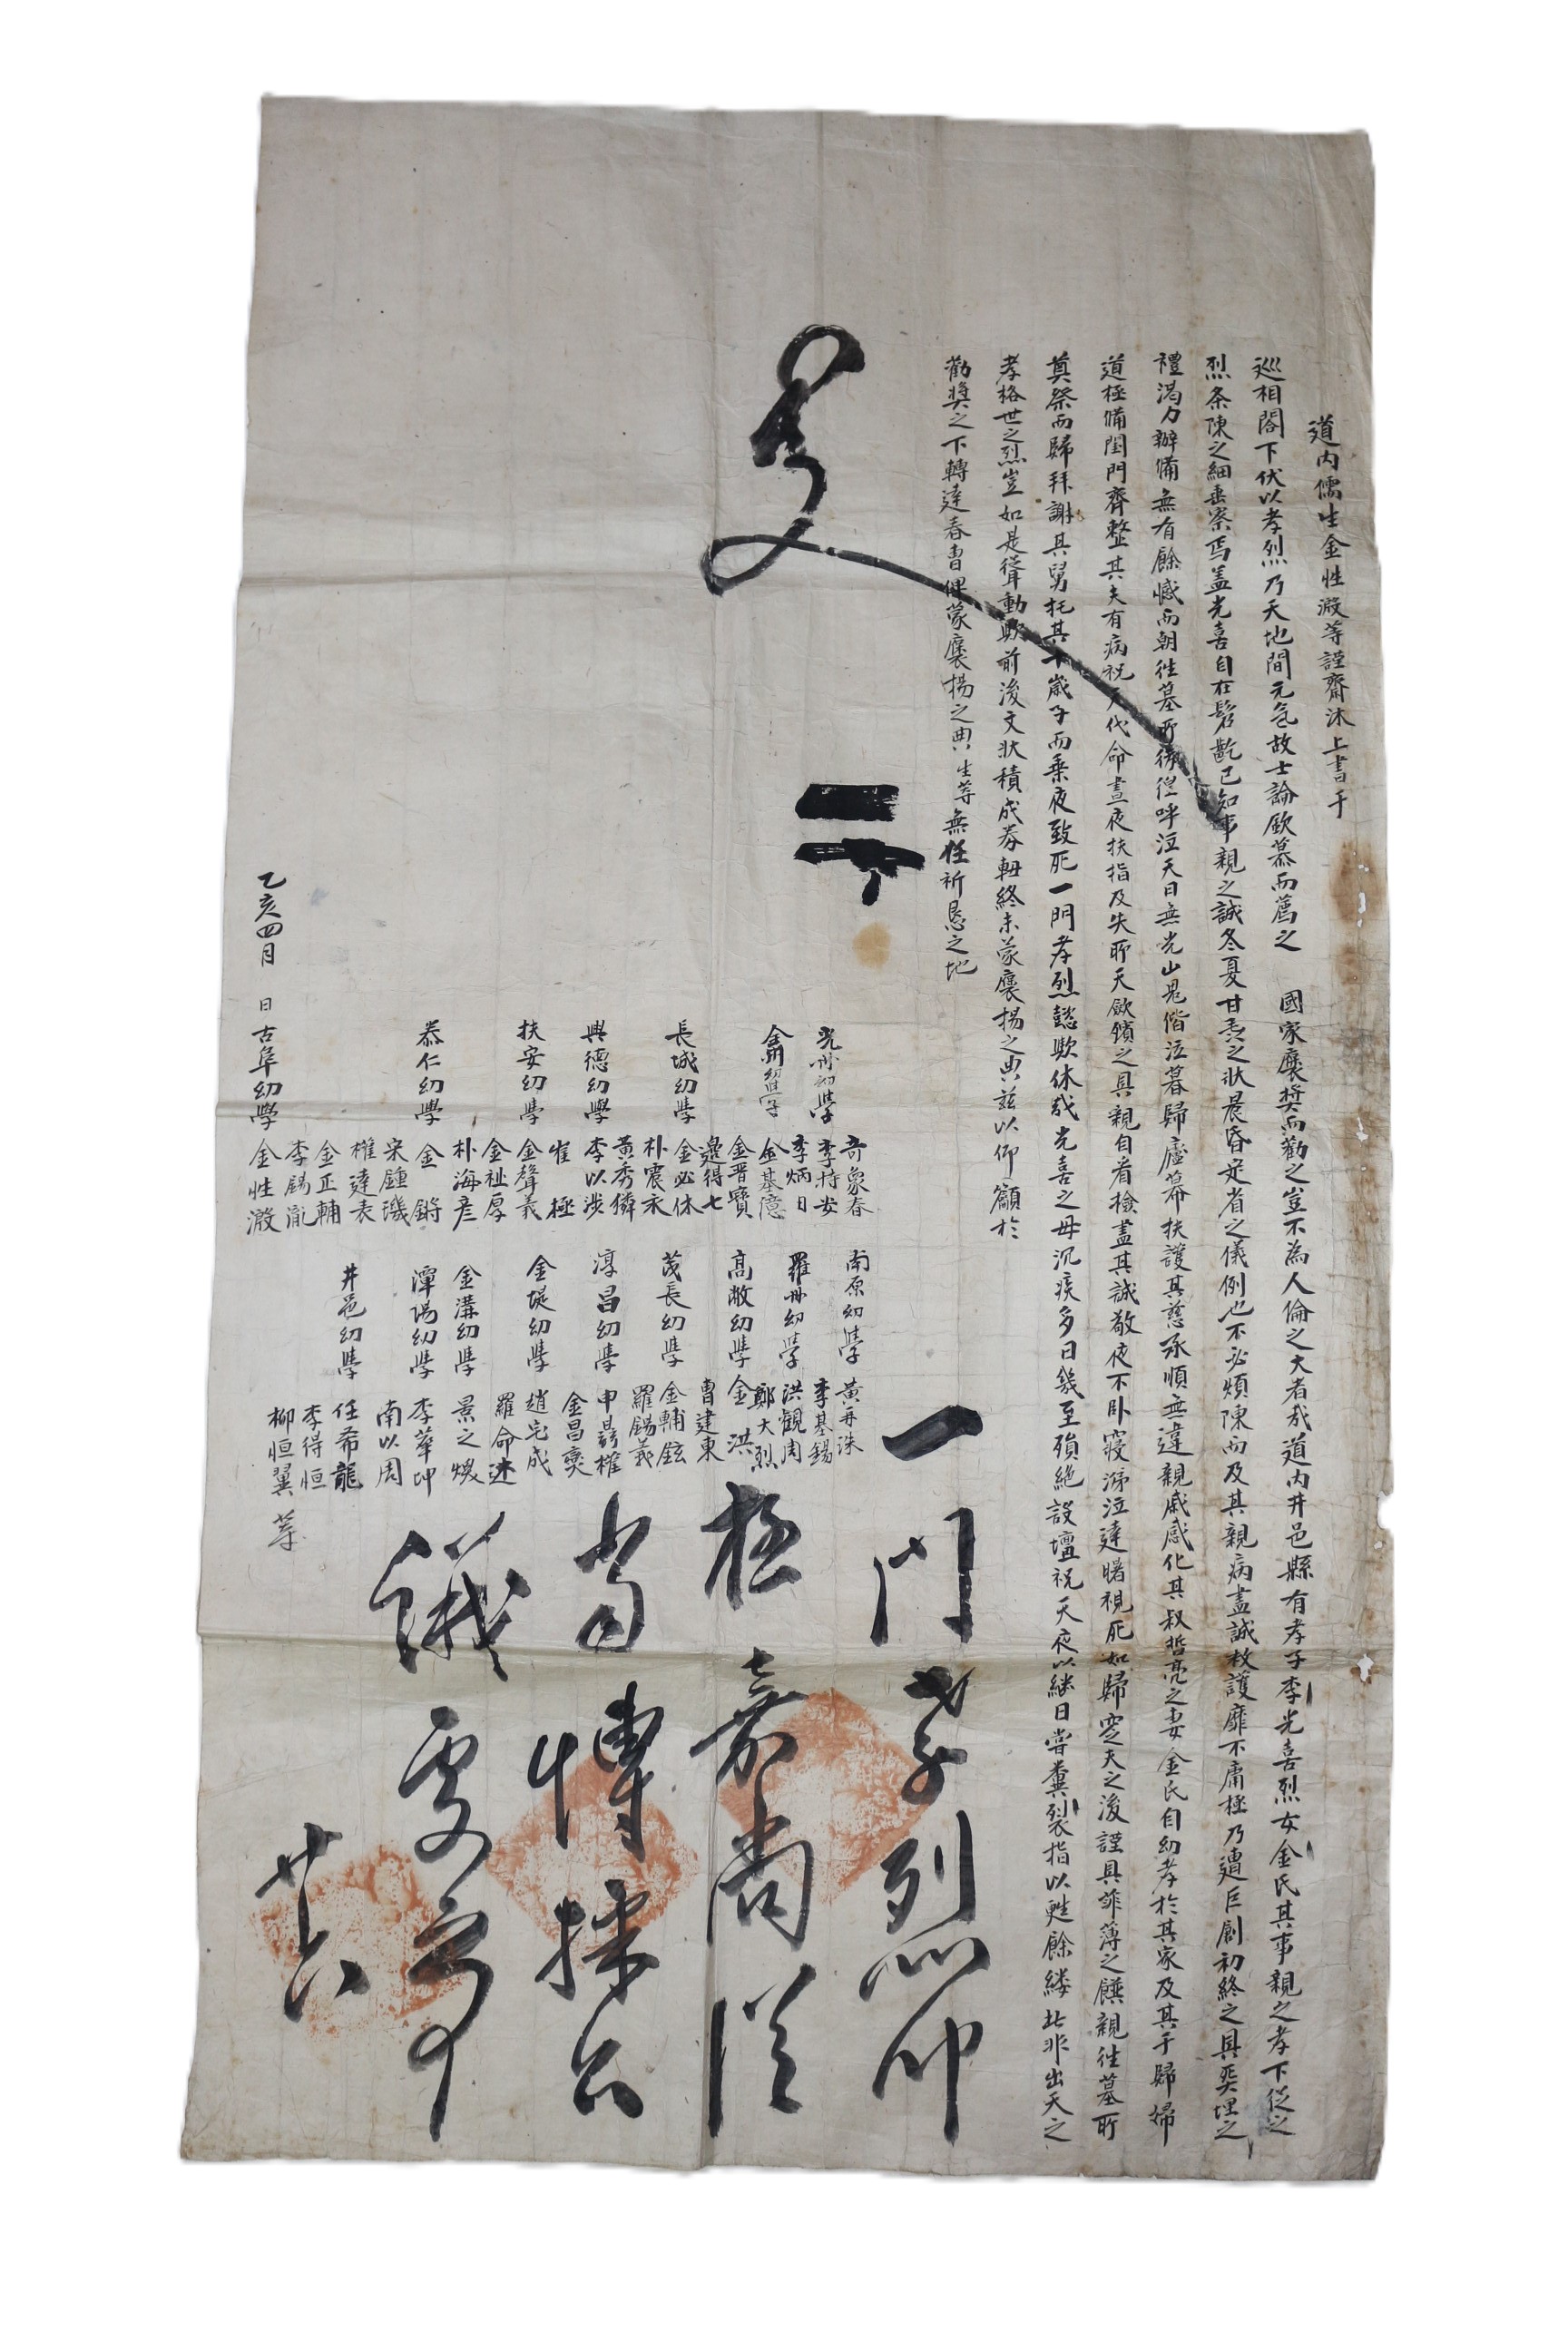 道內儒生金性漵等謹齋沐上書于
巡相閤下伏以孝烈乃天地間元氣故士論欽慕而薦之 國家褒獎而勸之豈不為人倫之大者哉道內井邑縣有孝子李光喜烈女金氏其事親之孝下從之
烈条陳之細垂察焉盖光喜自在髫齕已知事親之誠冬夏甘旨之状晨昏定省之儀例也不必煩陳而及其親病盡誠救護靡不庸極乃遭巨創初終之具奠埋之
禮渴力辦備無有餘憾而朝徃墓所彷徨呼泣天日無光山鬼偕泣暮歸廬幕扶護其慈承順無違親戚感化其叔哲亮之妻金氏自幼孝於其家及其于歸婦
道極備閨門齊整其夫有病祝天代命晝夜扶指及失所天歛殯之具親自看檢盡其誠敬夜不卧寢涕泣達曙視死如歸窆夫之後謹具菲薄之饌親徃墓所
奠祭而歸拜謝其舅托其十歲子而乗夜致死一門孝烈懿歟休哉光喜之母沉疾多日幾至殞絶設壇祝天夜以継日嘗糞裂指以甦餘縷此非出天之
孝格世之烈豈如是聳動歟前後文状積成券軸終未蒙褒揚之典玆以仰籲於
勸奬之下轉達春曺俾蒙褒揚之典生等無任祈恳之地
光州幼學 奇象春
李持安
李炳日
全州幼學 金基億
金晋寶
邊得七
長城幼學 金必休
朴震永
黃秀獜
興德幼學 李以涉
崔極
扶安幼學 金聲義
金祉厚
朴海彦
泰仁幼學 金鏘
宋鍾璣
權達表
金正輔
李錫胤
乙亥四月 日古阜幼學 金性漵
南原幼學 黃再洙
李基錫
羅州幼學 洪觀周
鄭大烈
高敞幼學 金洪
曺建東
茂長幼學 金輔鉉
羅錫義
淳昌幼學 申昜權
金昌奭
金堤幼學 趙宅成
羅命述
金溝幼學 景之煥
潭陽幼學 李華坤
南以周
井邑幼學 任希龍
李得恒
柳恒翼 等
一門孝烈心仰
極嘉尚從
當博採公
議處分事
廿六